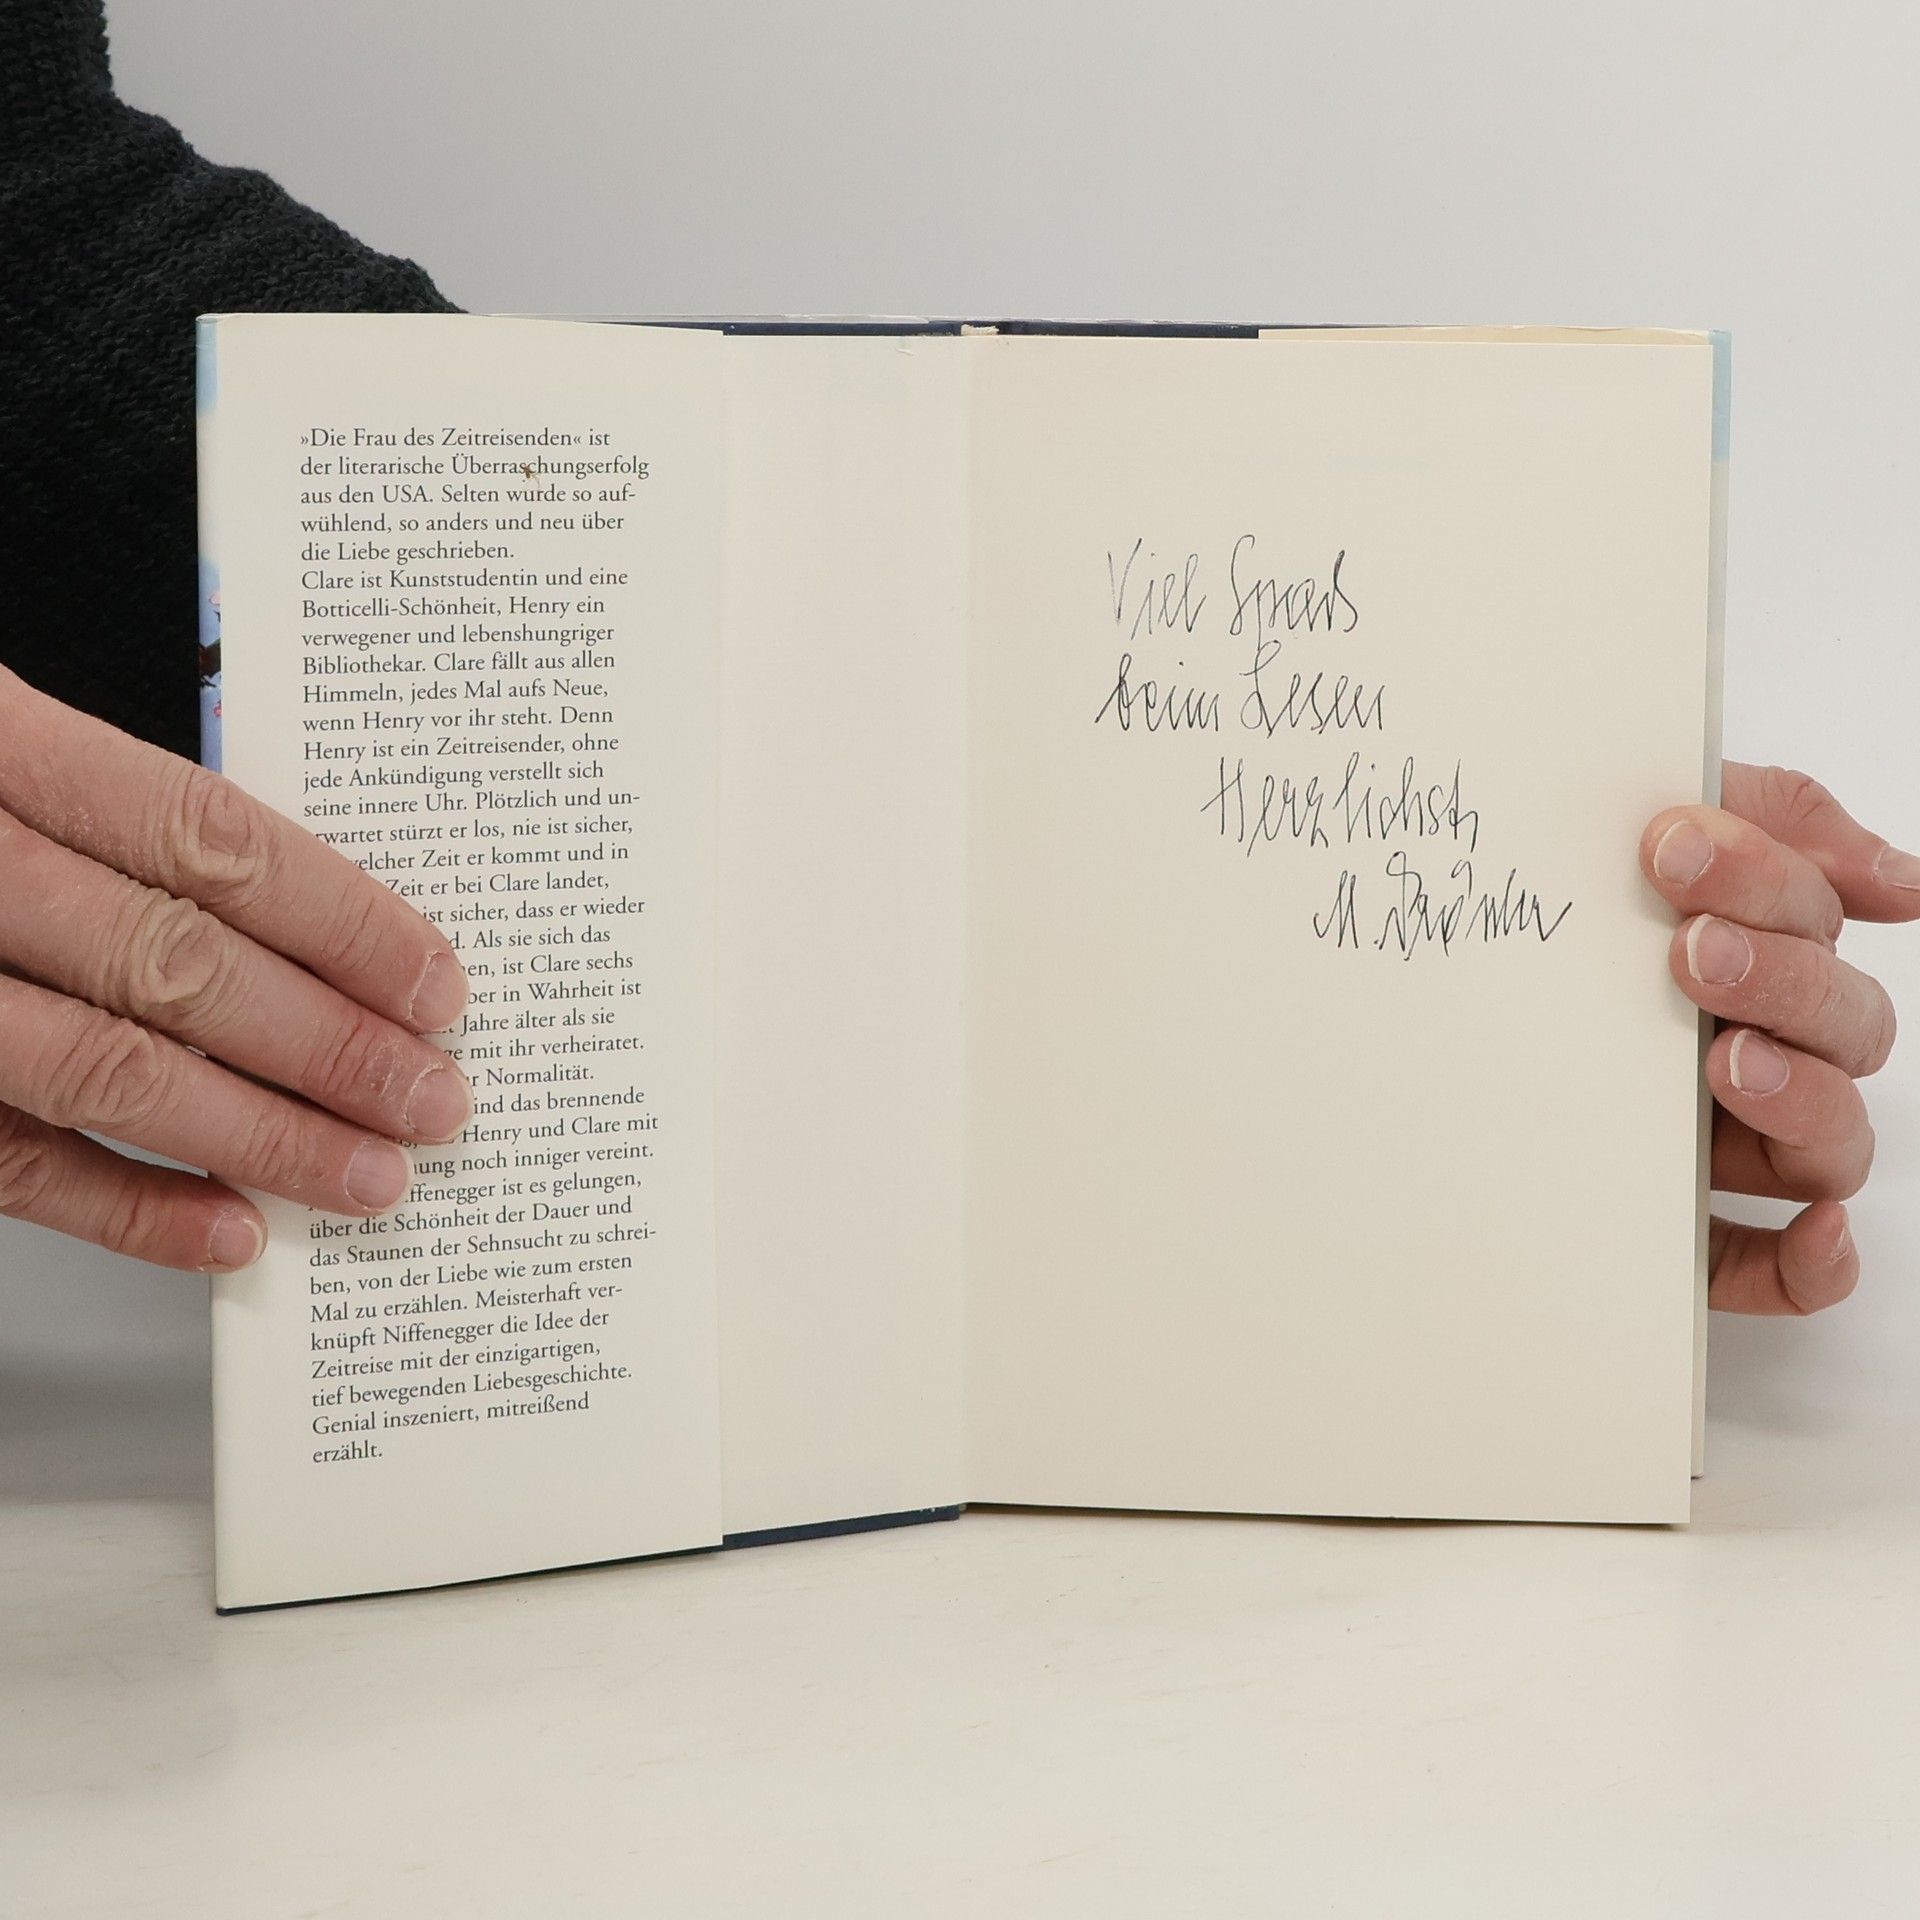 »Die Frau des Zeitreisenden« ist
der literarische Überraschungserfolg
aus den USA. Selten wurde so auf-
wühlend, so anders und neu über
die Liebe geschrieben.
Clare ist Kunststudentin und eine
Botticelli-Schönheit, Henry ein
verwegener und lebenshungriger
Bibliothekar. Clare fällt aus allen
Himmeln, jedes Mal aufs Neue,
wenn Henry vor ihr steht. Denn
Henry ist ein Zeitreisender, ohne
jede Ankündigung verstellt sich
seine innere Uhr. Plötzlich und un-
wartet stürzt er los, nie ist sicher,
welcher Zeit er kommt und in
Zeit er bei Clare landet,
ist sicher, dass er wieder
Als sie sich das
ist Clare sechs
in Wahrheit ist
Jahre älter als sie
mit ihr verheiratet.
Normalität.
das brennende
Henry und Clare mit
noch inniger vereint.
ffenegger ist es gelungen,
über die Schönheit der Dauer und
das Staunen der Sehnsucht zu schrei-
ben, von der Liebe wie zum ersten
Mal zu erzählen. Meisterhaft ver-
knüpft Niffenegger die Idee der
Zeitreise mit der einzigartigen,
tief bewegenden Liebesgeschichte.
Genial inszeniert, mitreißend
erzählt.
Viel Spaß
beim Lesen
Herzlichst,
M.